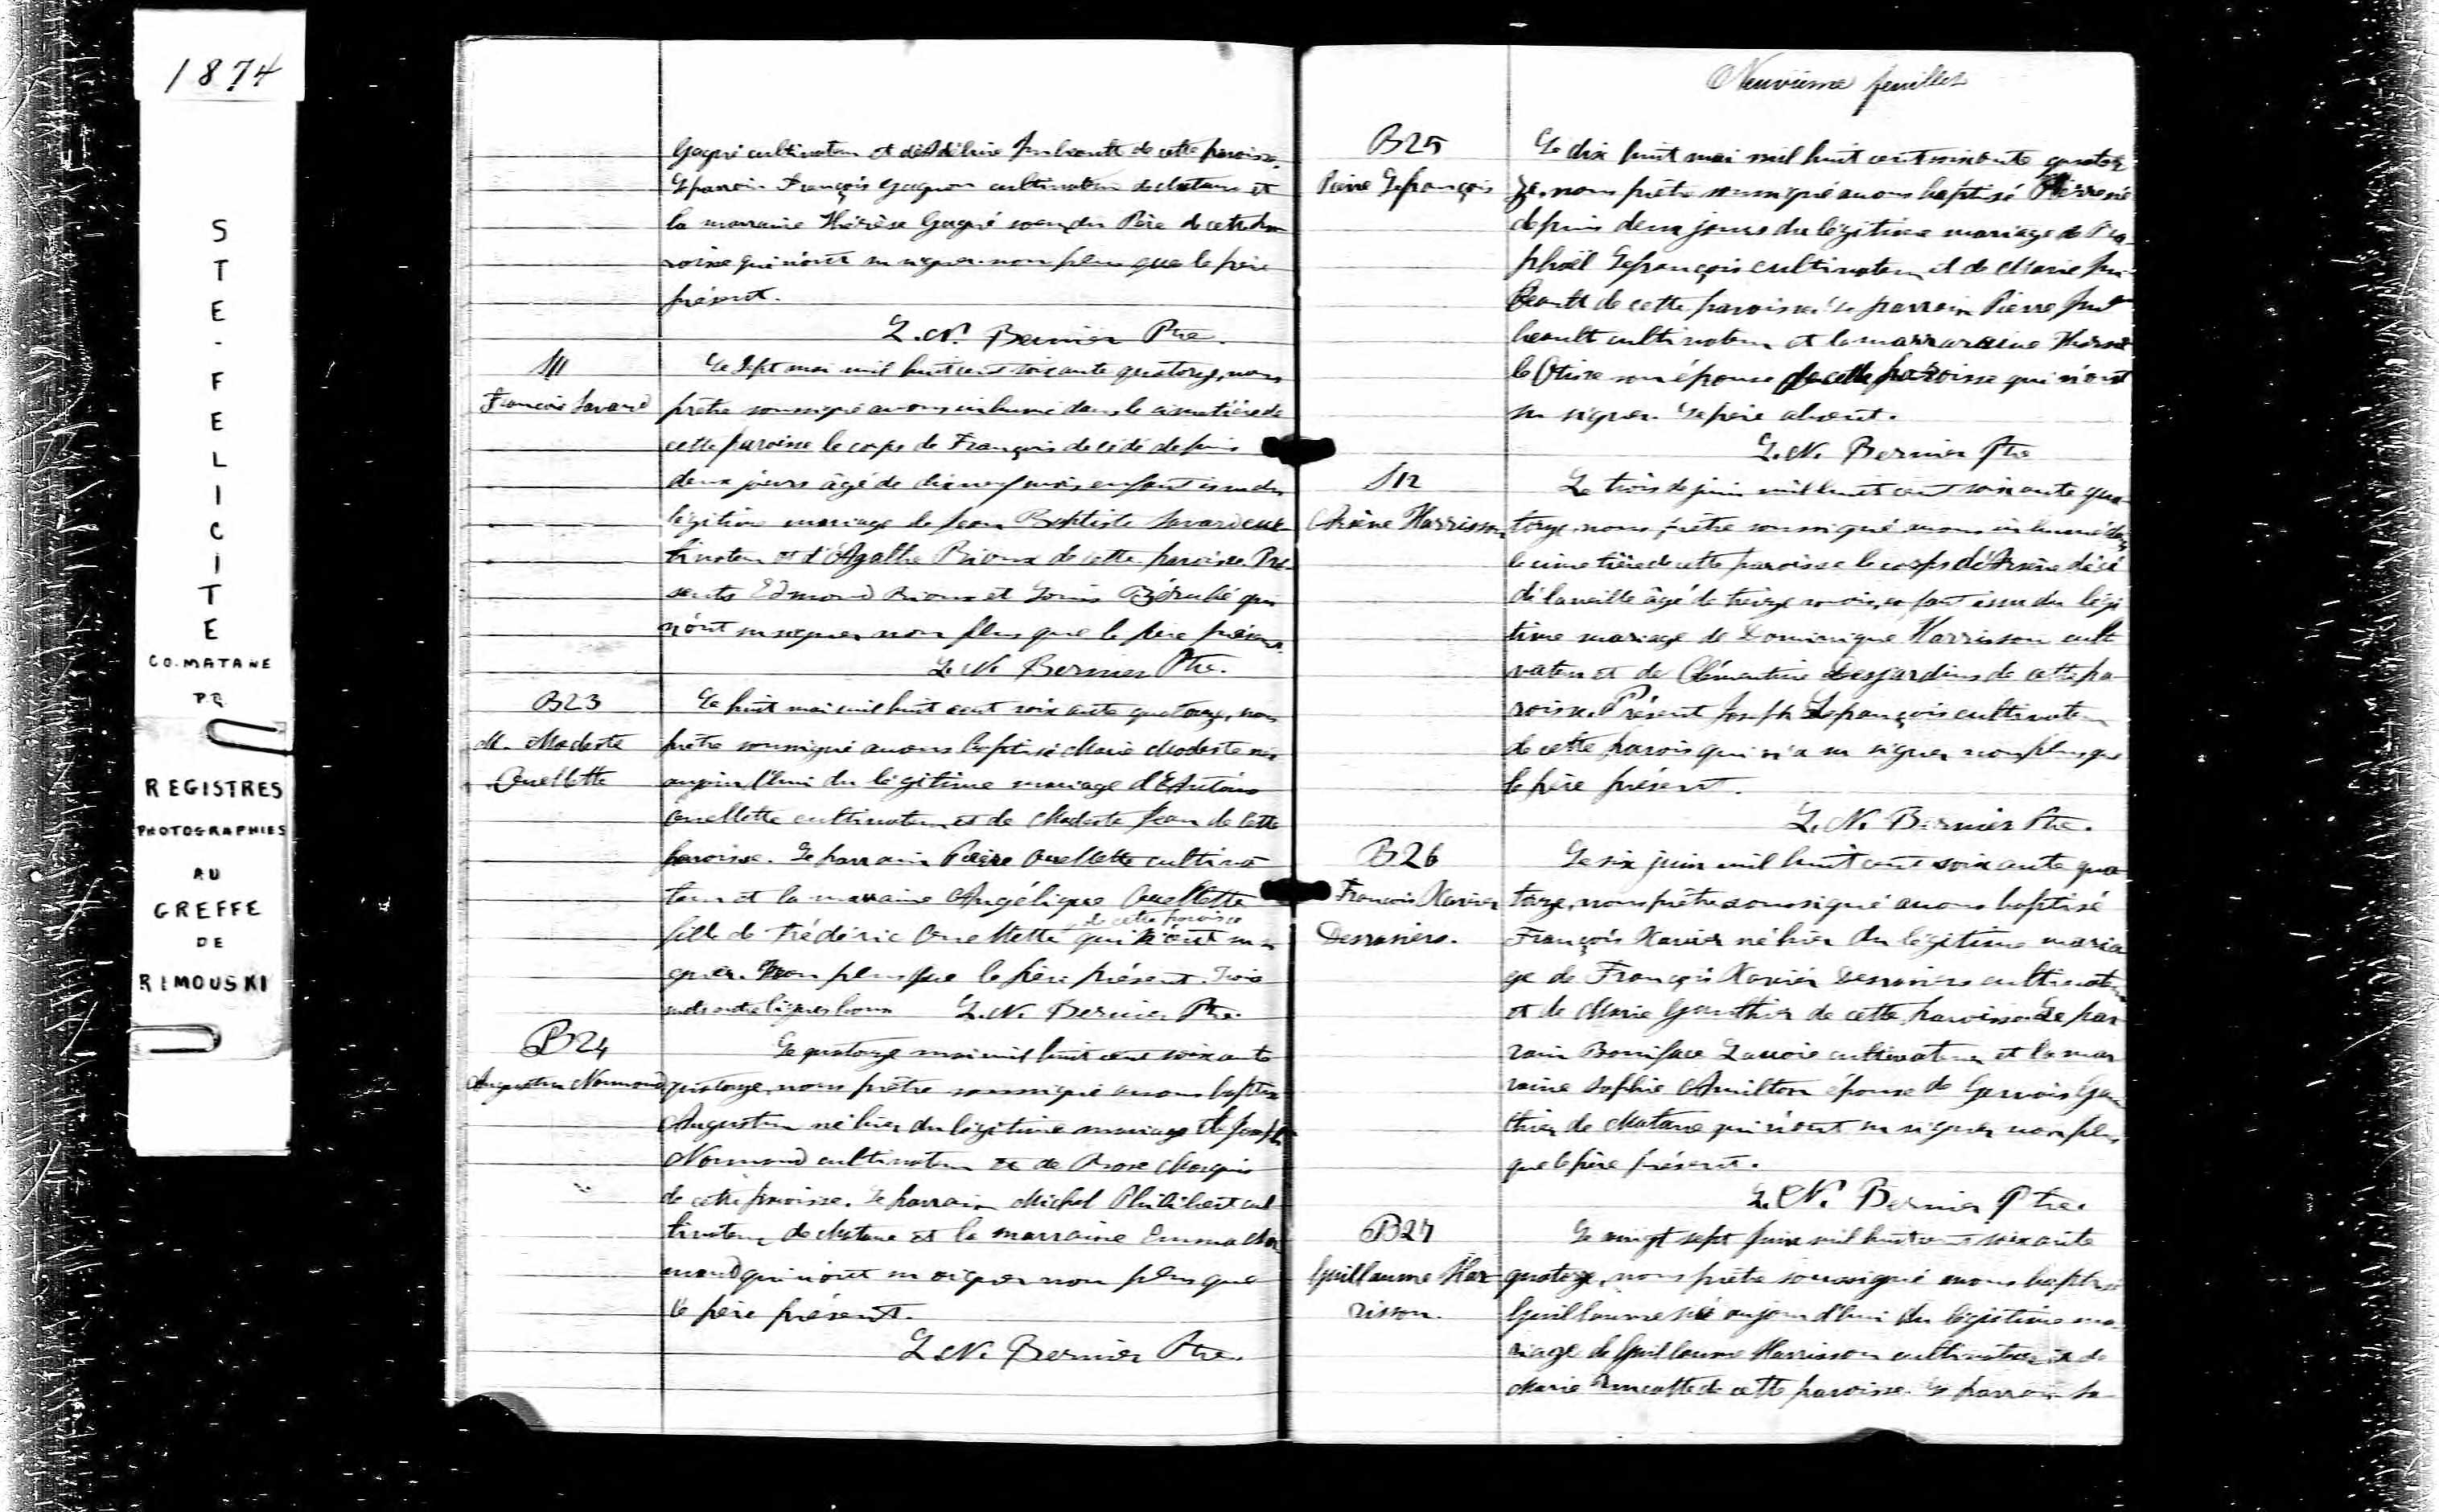 1874
STE-FELICITE
CO. MATANE
P Q
REGISTRES
PHOTOGRAPHIES
AU
GREFFE
DE
RIMOUSKI
Gagné cultivateur et de de cette paroisse.
Le parrain François Gagnon cultivateur de Matane et
la marraine Thérèse Gagné soeur du Père de cette pa
roisse qui n'ont su signer non plus que le père
présent.
L. N. Bernier Ptre.
S11
François Savard
Le sept mai mil huit cent soixante quatorze, nous
prêtre soussigné avons inhumé dans le cimetière de
cette paroisse le corps de François décédé depuis
deux jours âgé de dixneuf mois enfant issu du
légitime mariage de Jean Baptiste Savard cul
tivateur et d'Agathe Rioux de cette paroisse. Pré
sents Edmond Rioux et Louis Bérubé qui
n'ont su signer non plus que le père présent.
L. N. Bernier Ptre.
B23
M. Modeste
Ouellette
Le huit mai mil huit cent soixante quatorze, nous
prêtre soussigné avons baptisé Marie Modeste née
aujourd'hui du légitime mariage d'Antoine
Ouellette cultivateur et de Modeste Jean de cette
paroisse. Le parrain Pierre Ouellette cultiva
teur et la marraine Angélique Ouellette
de cette paroisse
fille de Frédéric Ouellette qui n'ont su si
gner non plus que le père présent. Trois
mots entre lignes bons L. N. Bernier Ptre.
B24
Augustin Normand
Le quatorze mai mil huit cent soixante
quatorze, nous prêtre soussigné avons baptisé
Augustin né hier du légitime mariage de Joseph
Normand cultivateur et de Rose Marquis
de cette paroisse. Le parrain Michel Philibert cul
tivateur de Matane et la marraine Emma Nor
mand qui n'ont su signer non plus que
le père présent.
L. N. Bernier Ptre.
Neuvième feuillet
B25
Pierre Lefrançois
Le dix huit mai mil huit cent soixante quator
ze, nous prêtre soussigné avons baptisé Pierre né
depuis deux jours du légitime mariage de Ra
phaël Lefrançois cultivateur et de Marie
de cette paroisse. Le parrain Pierre
cultivateur et la marraine
son épouse de cette paroisse qui n'ont
su signer. Le père absent.
L. N. Bernier Ptre
S12
Arsène Harrisson
Le trois de juin mil huit cent soixante qua
torze, nous prêtre soussigné avons inhumé dans
le cimetière de cette paroisse le corps d'Arsène décé
dé la veille âgé de treize mois, enfant issu du légi
time mariage de Dominique Harrisson culti
vateur et de Clémentine Desjardins de cette pa
roisse. Présent Joseph Lefrançois cultivateur
de cette parois qui n'a su signer non plus que
le père présent.
L. N. Bernier Ptre.
B26
François Xavier
Desrosiers.
Le six juin mil huit cent soixante qua
torze, nous prêtre soussigné avons baptisé
François Xavier né hier du légitime maria
ge de François Xavier Desrosiers cultivateur
et de Marie Gauthier de cette paroisse. Le par
rain Boniface Lavoie cultivateur et la mar
raine Sophie Amilton épouse de Gervais Gau
thier de Matane qui n'ont su signer non plus
que le père présent.
L. N. Bernier Ptre.
B27
Guillaume Har
risson.
Le vingt sept juin mil huit cent soixante
quatorze, nous prêtre soussigné avons baptisé
Guillaume né aujourd'hui du légitime ma
riage de Guillaume Harrisson cultivateur et de
Marie de cette paroisse. Le parrain